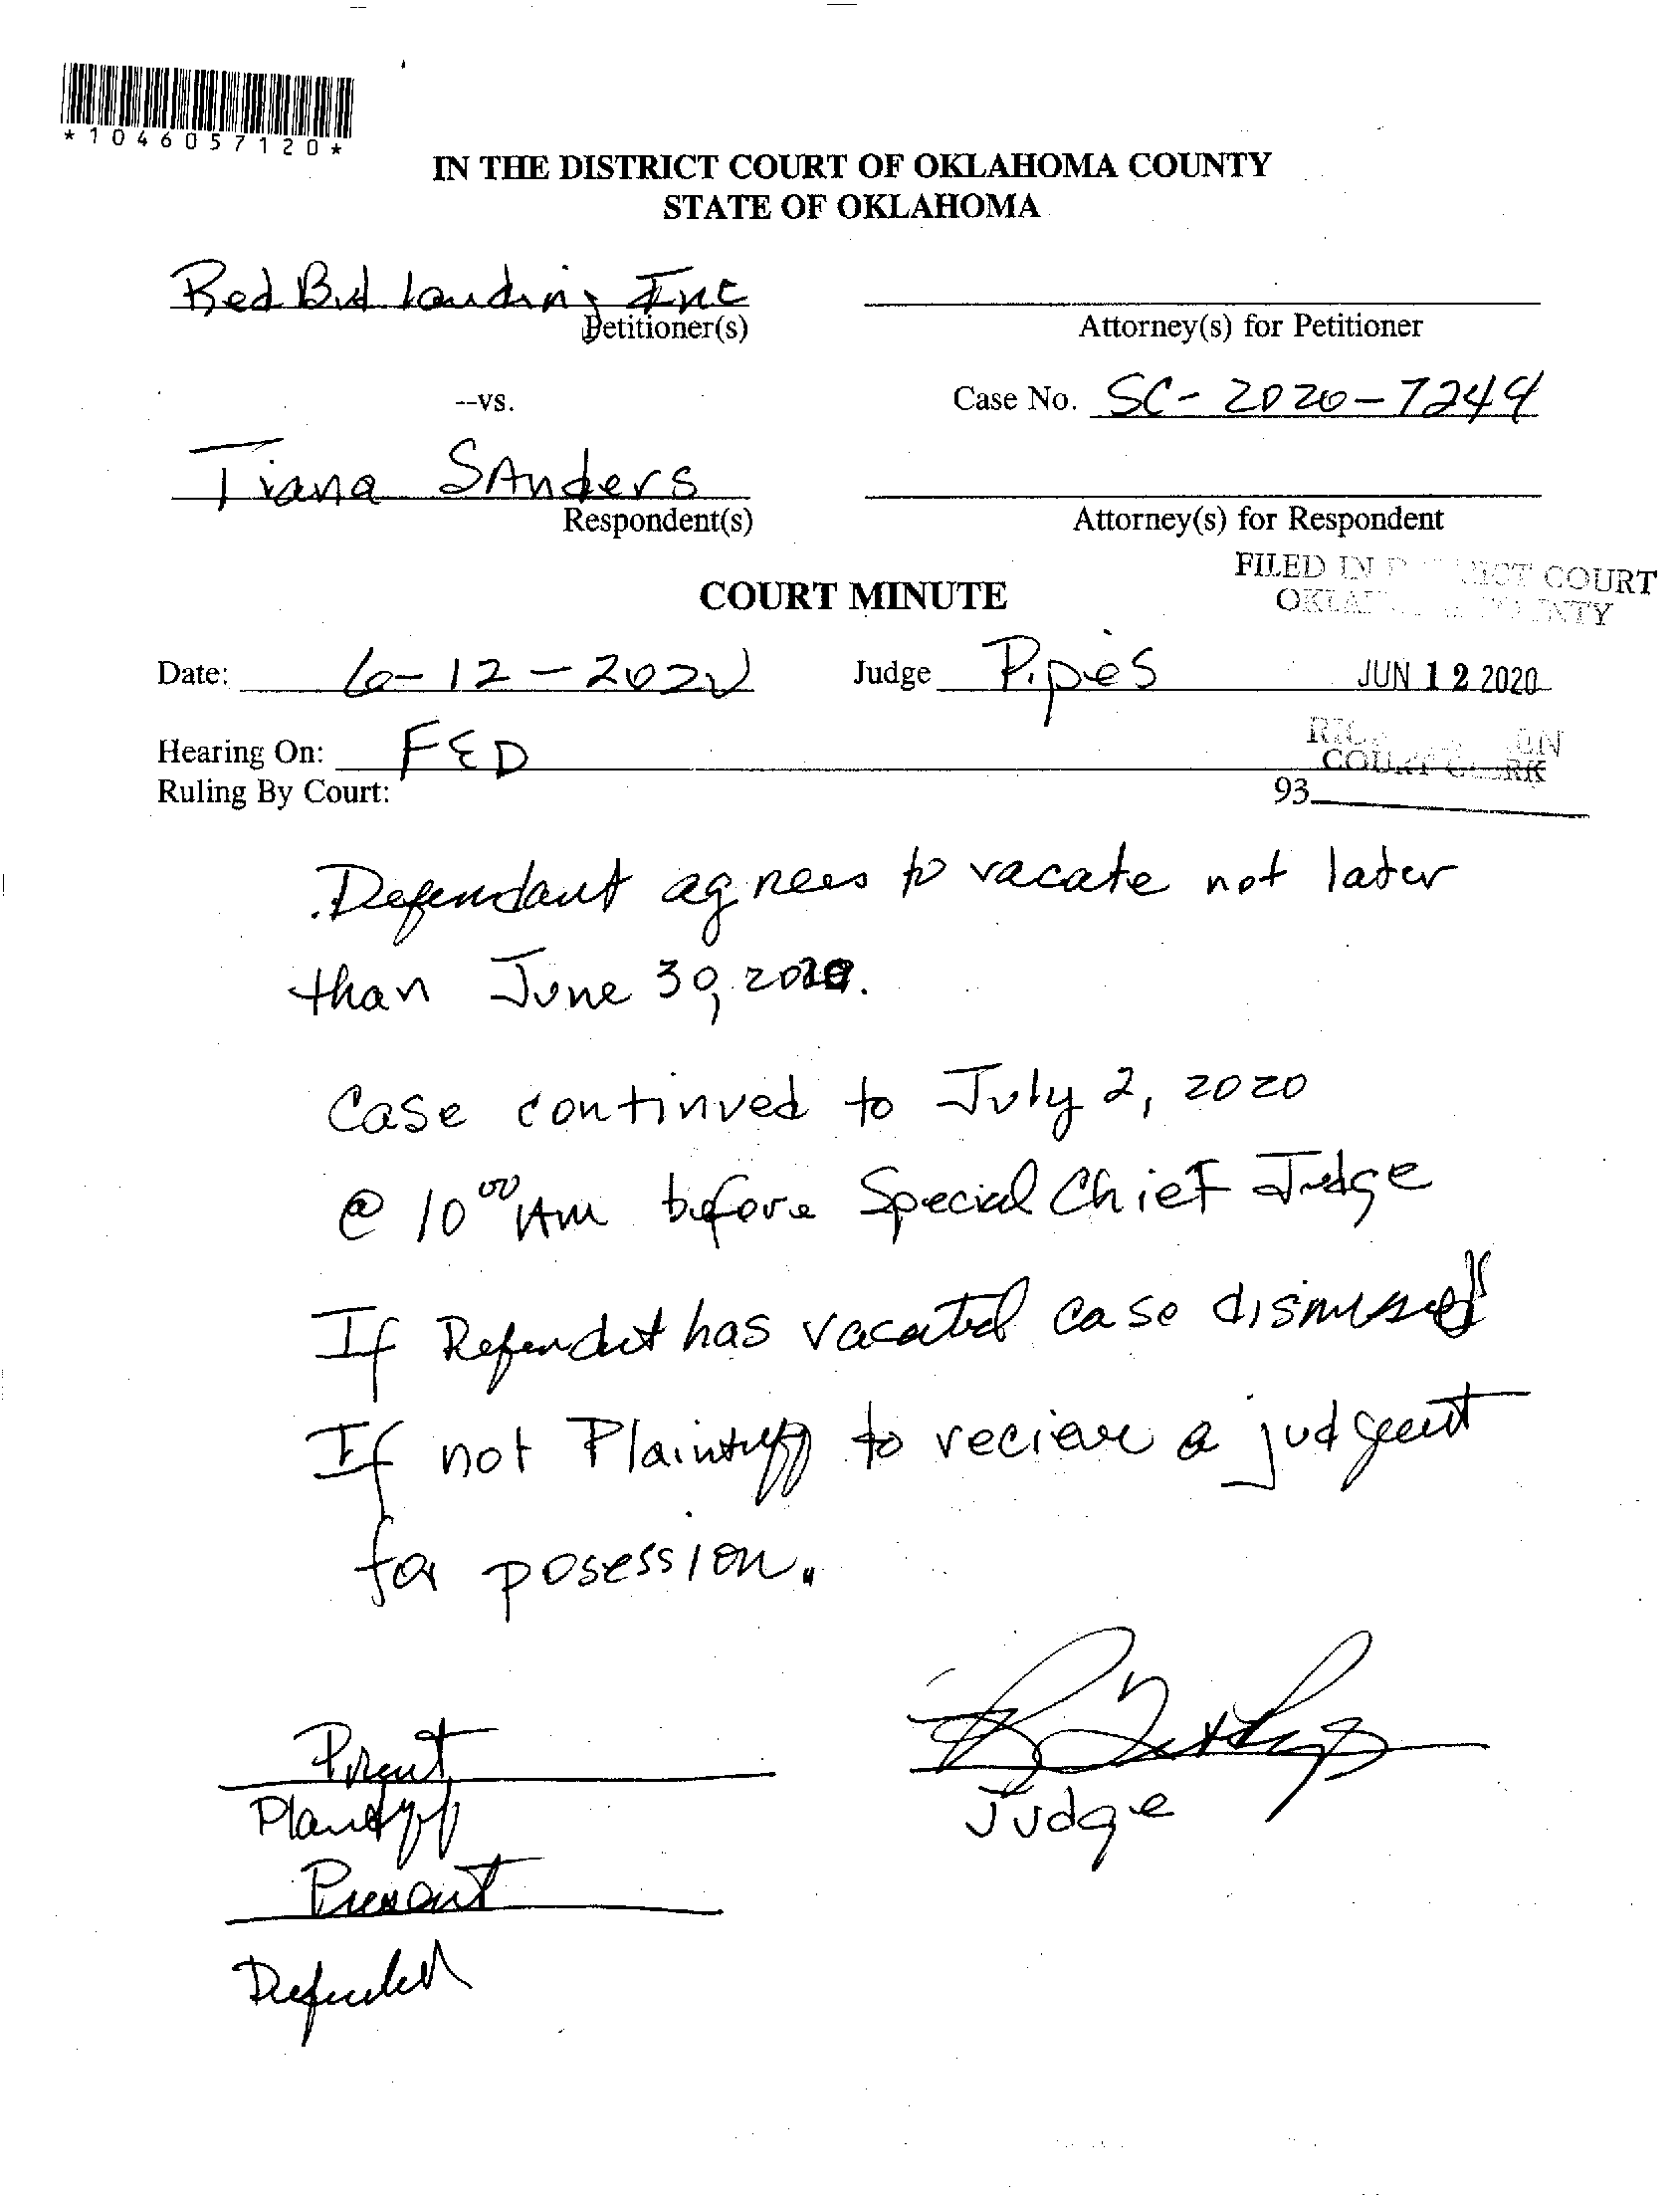 *1046057120*
IN THE DISTRICT COURT OF OKLAHOMA COUNTY
STATE OF OKLAHOMA
Red Bud Landing Inc
Petitioner(s)
Attorney(s) for Petitioner
--vs.
Case No. SC-2020-7244
Tiana SAnders
Respondent(s)
Attorney(s) for Respondent
FILED IN COURT
COURT MINUTE
Date: 6-12-2020 Judge Pipes JUN 12 2020
Hearing On: FED
COURT
Ruling By Court: 93
Defendant agrees to vacate not later
than June 30, 2020.
Case continued to July 2, 2020
@ 10 00 AM before Special Chief Judge
If Defendant has vacated case dismissed
If not Plaintiff to recieve a judgment
for posession.
Present
Plaintiff
Judge
Present
Defendant